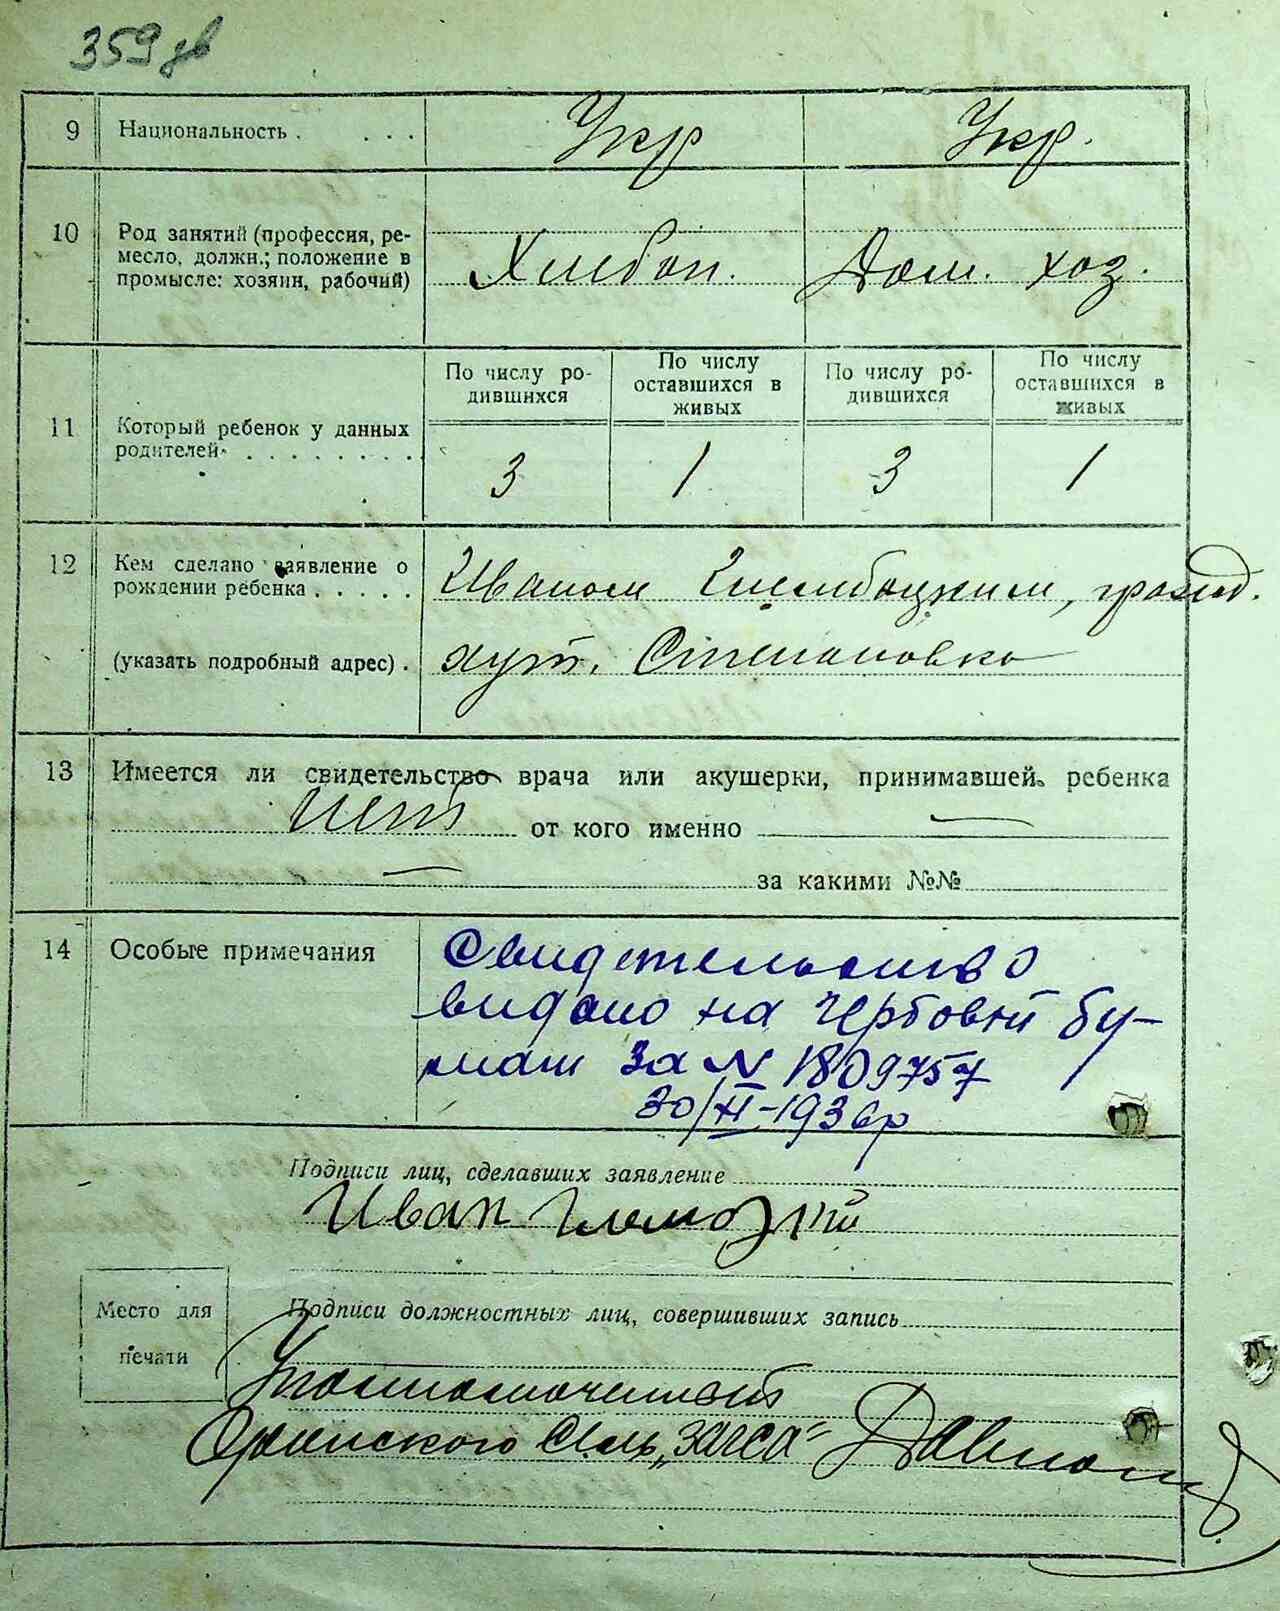 359 дв
9 Национальность . . . . Укр Укр.
10 Род занятий (профессия, ре-
месло, должн.; положение в
промысле: хозяин, рабочий)
Хлебоп. Дом. хоз.
По числу ро-
дившихся
По числу
оставшихся в
живых
По числу ро-
дившихся
По числу
оставшихся в
живых
11 Который ребенок у данных
родителей . . . . . . . . .
3 1 3 1
12 Кем сделано заявление о
рождении ребенка . . . . .
Иваном
(указать подробный адрес) .
хут. Степановка
13 Имеется ли свидетельство врача или акушерки, принимавшей ребенка
нет от кого именно —
— за какими №№
14 Особые примечания
Свидетельство
видано на гербовой бу-
маги за N 1809757
30/XI-1936р
Подписи лиц, сделавших заявление
Иван
Место для
печати
Подписи должностных лиц, совершивших запись
Уполномоченный
Сель „ЗАГСА"